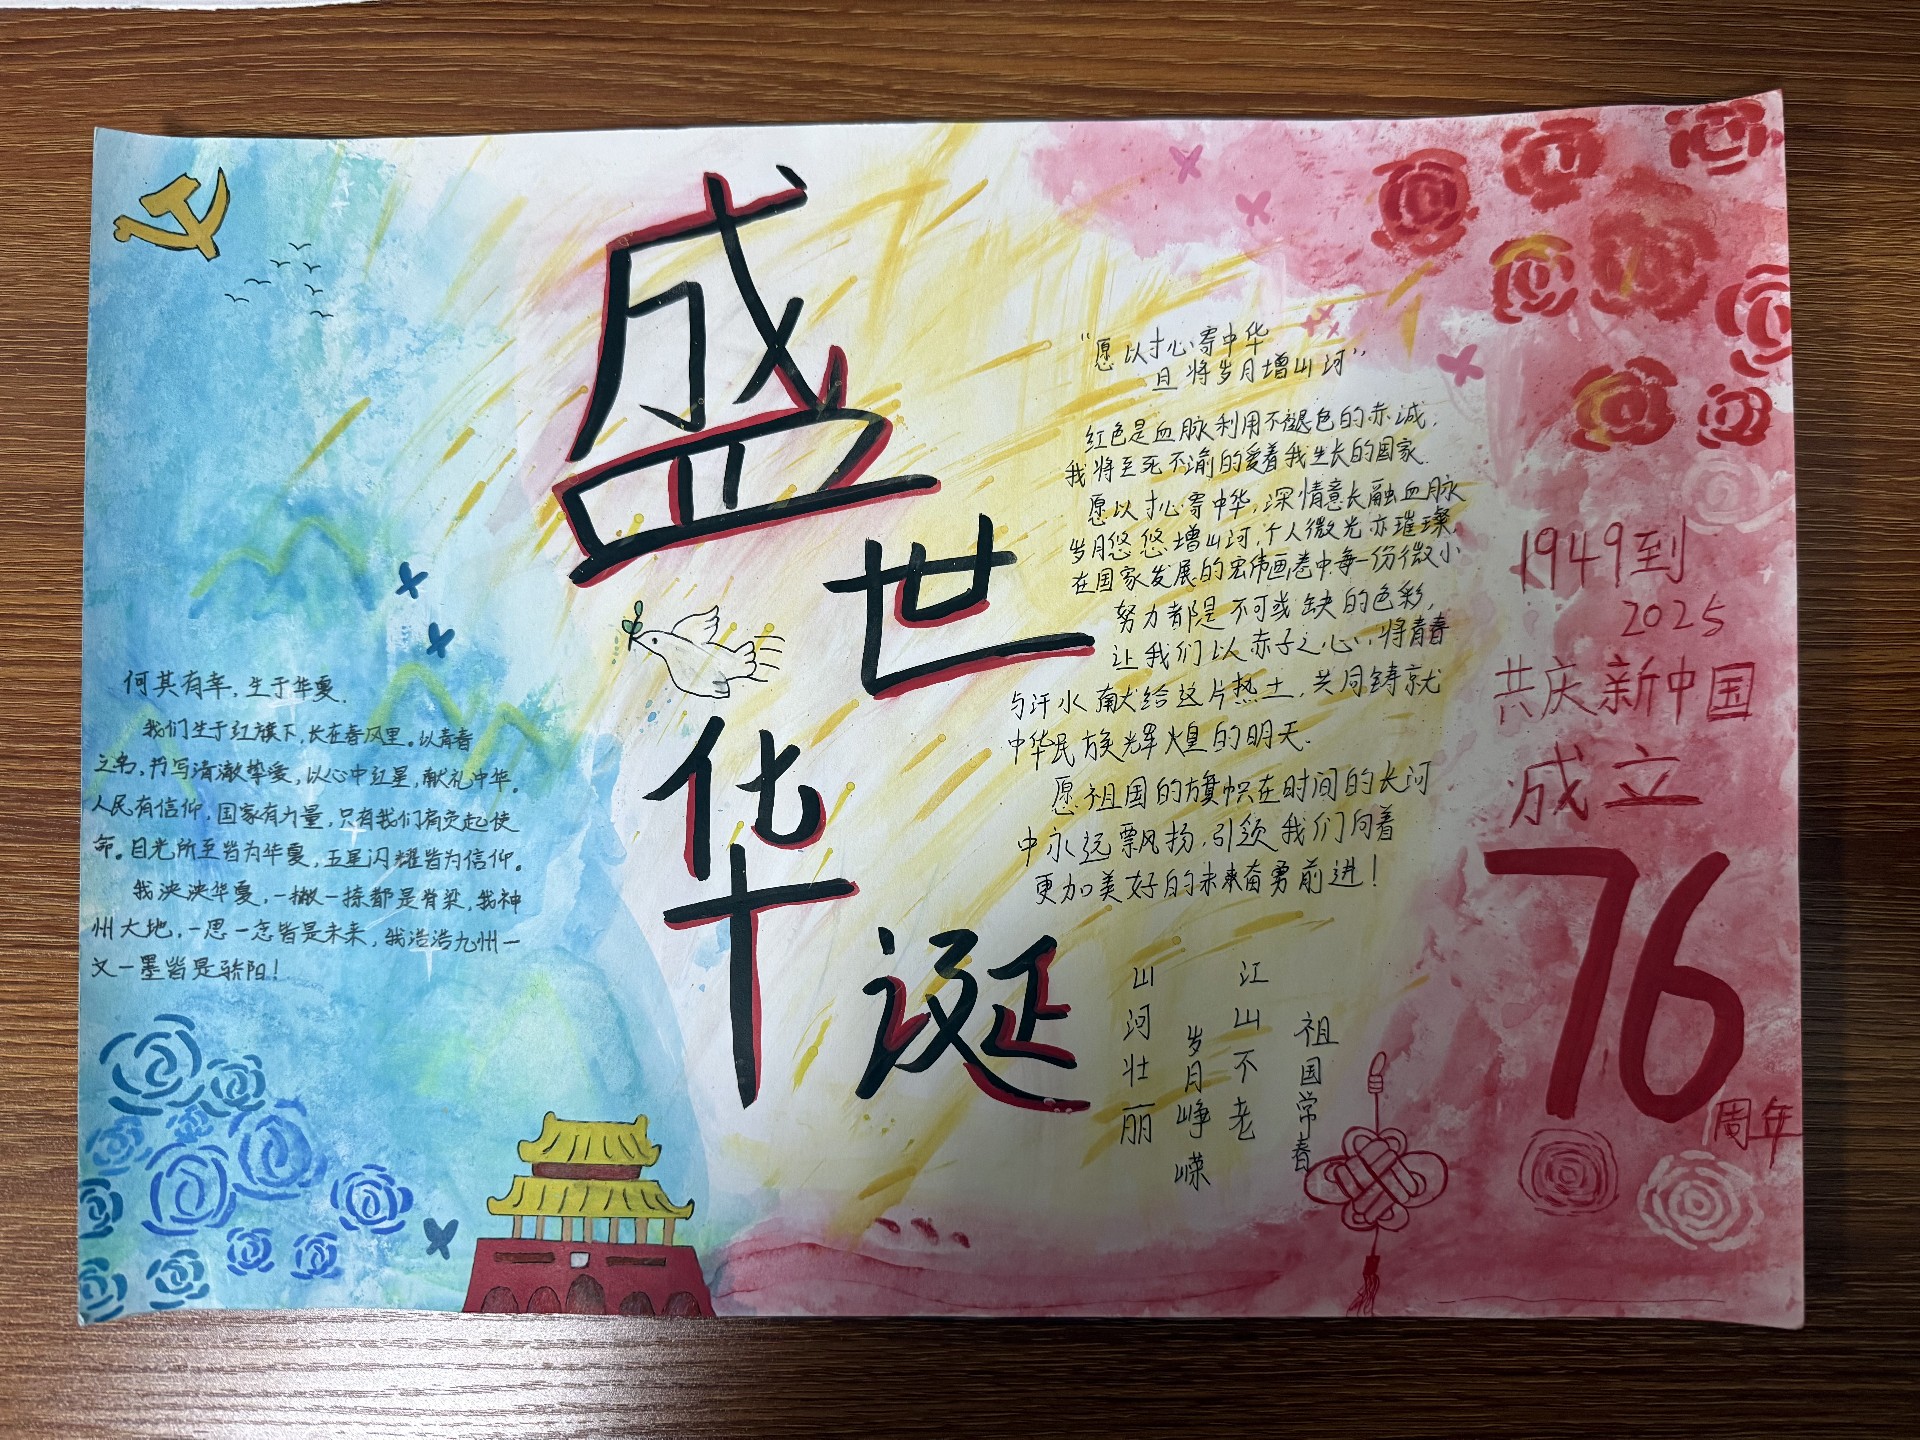 盛世华诞
何其有幸，生于华夏．
我们生于红旗下，长在春风里。以青春
之名，书写清澈挚爱，以心中红星，献礼中华。
人民有信仰，国家有力量，只有我们肩负起使
命。目光所至皆为华夏，五星闪耀皆为信仰。
我泱泱华夏，一撇一捺都是脊梁，我神
州大地，一思一念皆是未来，我浩浩九州一
文一墨皆是骄阳！
“愿以寸心寄中华
且将岁月增山河”
红色是血脉利用不褪色的赤诚，
我将至死不渝的爱着我生长的国家．
愿以寸心寄中华，深情意长融血脉
岁月悠悠增山河，个人微光亦璀璨，
在国家发展的宏伟画卷中每一份微小
努力都是不可或缺的色彩，
让我们以赤子之心，将青春
与汗水献给这片热土，共同铸就
中华民族辉煌的明天．
愿祖国的旗帜在时间的长河
中永远飘扬，引领我们向着
更加美好的未来奋勇前进！
山河壮丽
岁月峥嵘
江山不老
祖国常春
1949到
2025
共庆新中国
成立
76
周年